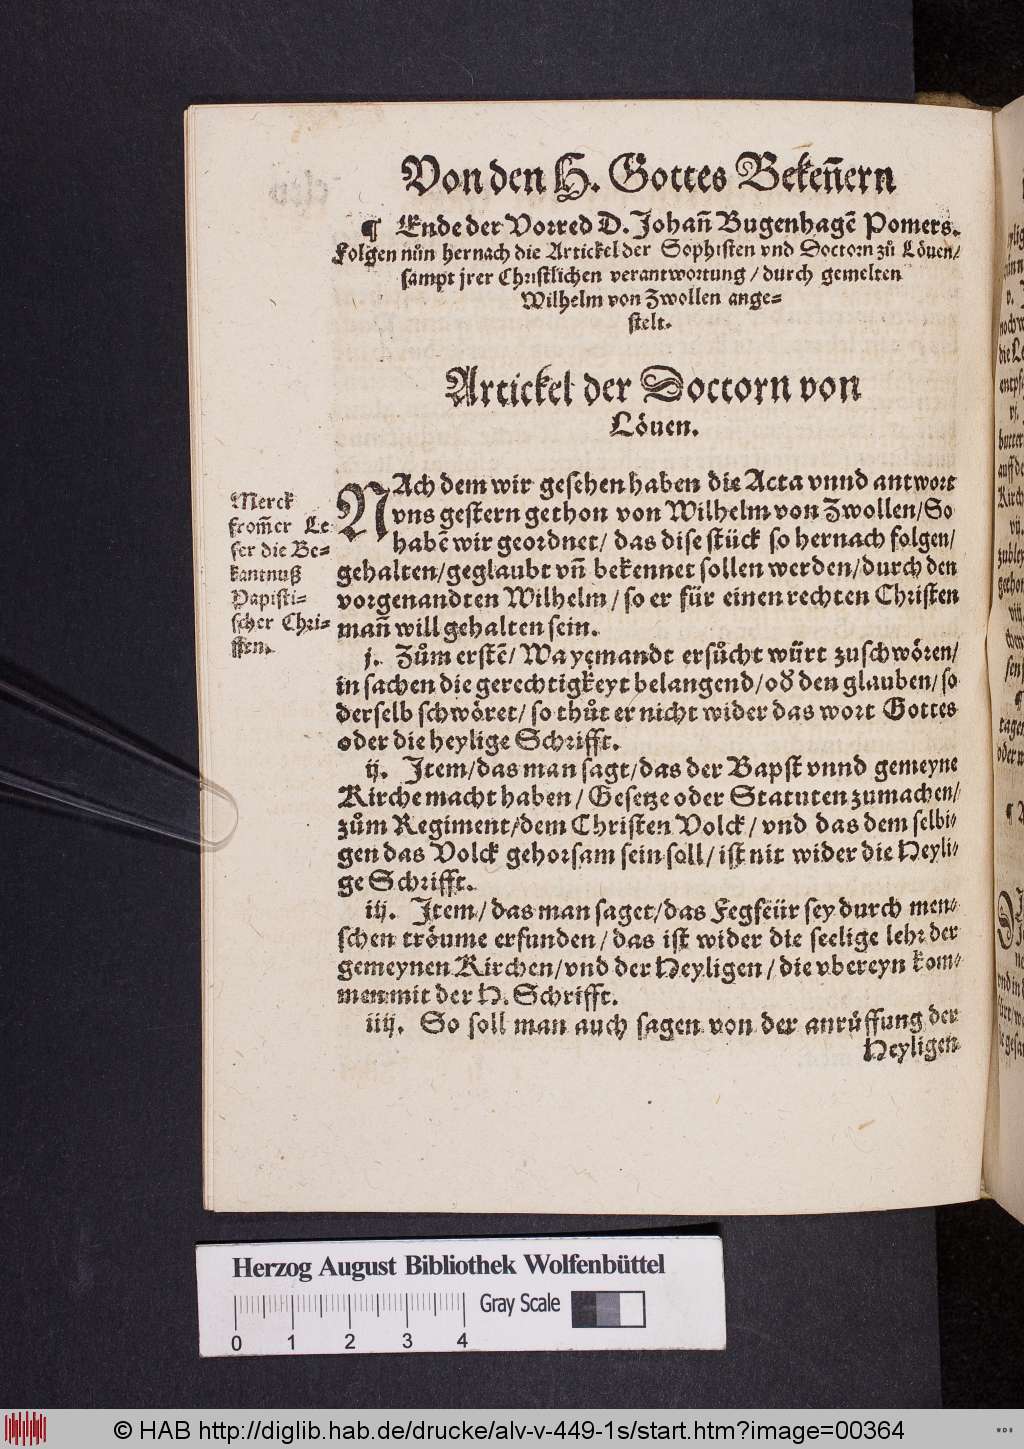 Von den H. Gottes Bekeñern
¶ Ende der Vorred D. Johañ Bugenhagẽ Pomers.
Folgen nůn hernach die Artickel der Sophisten vnd Doctorn zů Löuen/
sampt jrer Christlichen verantwortung / durch gemelten
Wilhelm von Zwollen ange=
stelt.
Artickel der Doctorn von
Löuen.
Merck
fro\u0303mer Le
ser die Be=
kantnuß
Papisti=
scher Chri=
sten.
NAch dem wir gesehen haben die Acta vnnd antwort
vns gestern gethon von Wilhelm von Zwollen/So
habẽ wir geordnet/ das dise stück so hernach folgen/
gehalten/geglaubt vñ bekennet sollen werden/durch den
vorgenandten Wilhelm / so er für einen rechten Christen
mañ will gehalten sein.
j. Zům erstẽ/ Wa yemandt ersůcht würt zuschwören/
in sachen die gerechtigkeyt belangend/od den glauben/ so
derselb schwöret/ so thůt er nicht wider das wort Gottes
oder die heylige Schrifft.
ij. Item/das man sagt/das der Bapst vnnd gemeyne
Kirche macht haben / Gesetze oder Statuten zumachen/
zům Regiment/dem Christen Volck / vnd das dem selbi=
gen das Volck gehorsam sein soll/ ist nit wider die Heyli=
ge Schrifft.
iij. Item/ das man saget/das Fegfeür sey durch men=
schen tröume erfunden/ das ist wider die seelige lehr der
gemeynen Kirchen/vnd der Heyligen / die vbereyn kom=
men mit der H. Schrifft.
iiij. So soll man auch sagen von der anrůffung der
Heyligen
Herzog August Bibliothek Wolfenbüttel
Gray Scale
0 1 2 3 4
© HAB http://diglib.hab.de/drucke/alv-v-449-1s/start.htm?image=00364